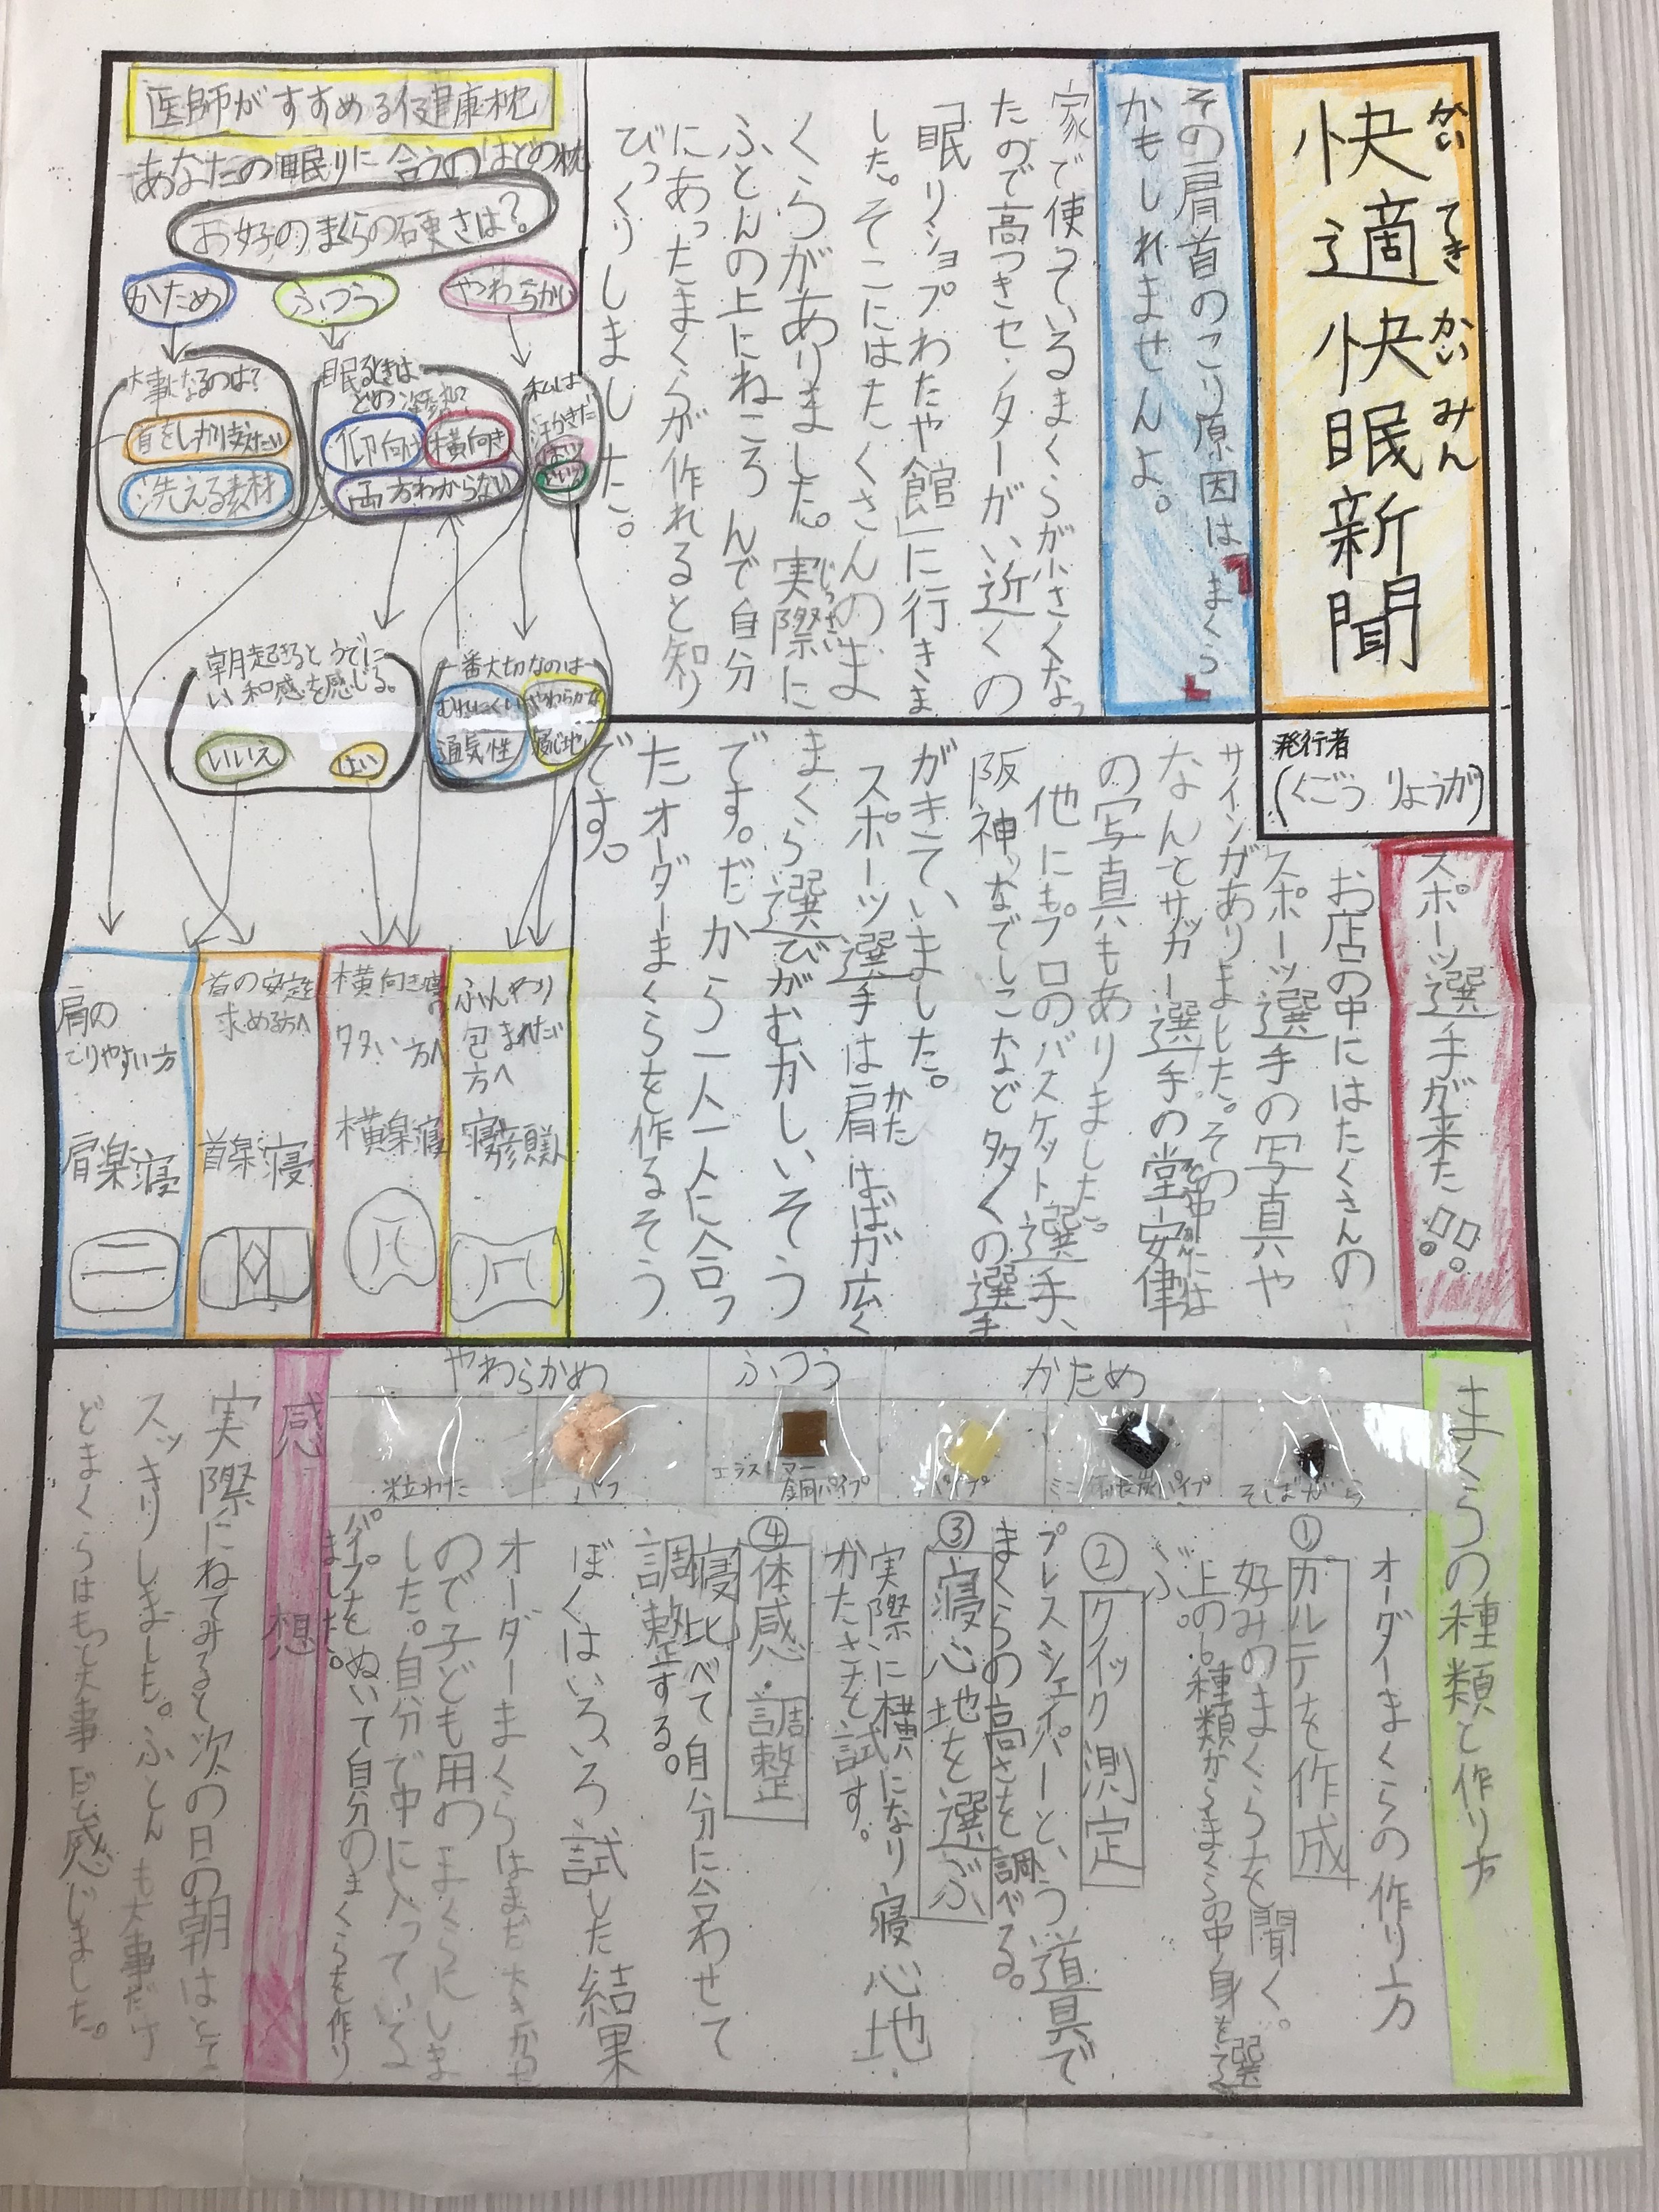 快適快眠新聞
かいてきかいみん
発行者
(くごう りょうが)
その肩首のこり原因はまくら
かもしれませんよ。
家で使っているまくらが小さくなっ
たので高つきセンターがい近くの
「眠りショプわたや館」に行きま
した。そこにはたくさんのま
くらがありました。実際に
じっさい
ふとんの上にねころんで自分
にあったまくらが作れると知り
びっくりしました。
スポーツ選手が来た!!
お店の中にはたくさんの
スポーツ選手の写真や
サインがありました。その中には
なんとサッカー選手の堂安律
の写真もありました。
他にもプロのバスケット選手、
阪神、なでしこなど多くの選手
がきていました。
スポーツ選手は肩はばが広く
かた
まくら選びがむかしいそう
です。だから一人一人に合っ
たオーダーまくらを作るそう
です。
医師がすすめる健康枕
あなたの眠りに合うのはどの枕
お好のまくらの硬さは?
かため
ふつう
やわらかい
大事になるのは?
首をしっかり支えたい
洗える素材
眠るときは
どの姿勢?
仰向け
横向き
両方わからない
私は
汗かきだ
はい
いいえ
朝起きるとうでに
い和感を感じる。
いいえ
はい
一番大切なのは
むれにくい
通気性
やわらかな
寝心地
肩の
こりやすい方
肩楽寝
首の安定を
求める方へ
首楽寝
横向き寝の
多い方へ
横楽寝
ふんわり
包まれたい
方へ
寝顔美人
まくらの種類と作り方
かため
ふつう
やわらかめ
そばがら
ミニ備長炭パイプ
パイプ
エラストマー
銅パイプ
パフ
粒わた
オーダーまくらの作り方
①カルテを作成
好みのまくらを聞く。
上の6種類からまくらの中身を選
ぶ。
②クイック測定
プレスシェイパーという道具で
まくらの高さを調べる。
③寝心地を選ぶ
実際に横になり寝心地
かたさを試す。
④体感・調整
寝比べて自分に合わせて
調整する。
ぼくはいろいろ試した結果
オーダーまくらはまだ大きかった
ので子ども用のまくらにしま
した。自分で中に入っている
パイプをぬいて自分のまくらを作り
ました。
感想
実際にねてみると次の日の朝はとても
スッキリしました。ふとんも大事だけ
どまくらはもっと大事だと感じました。